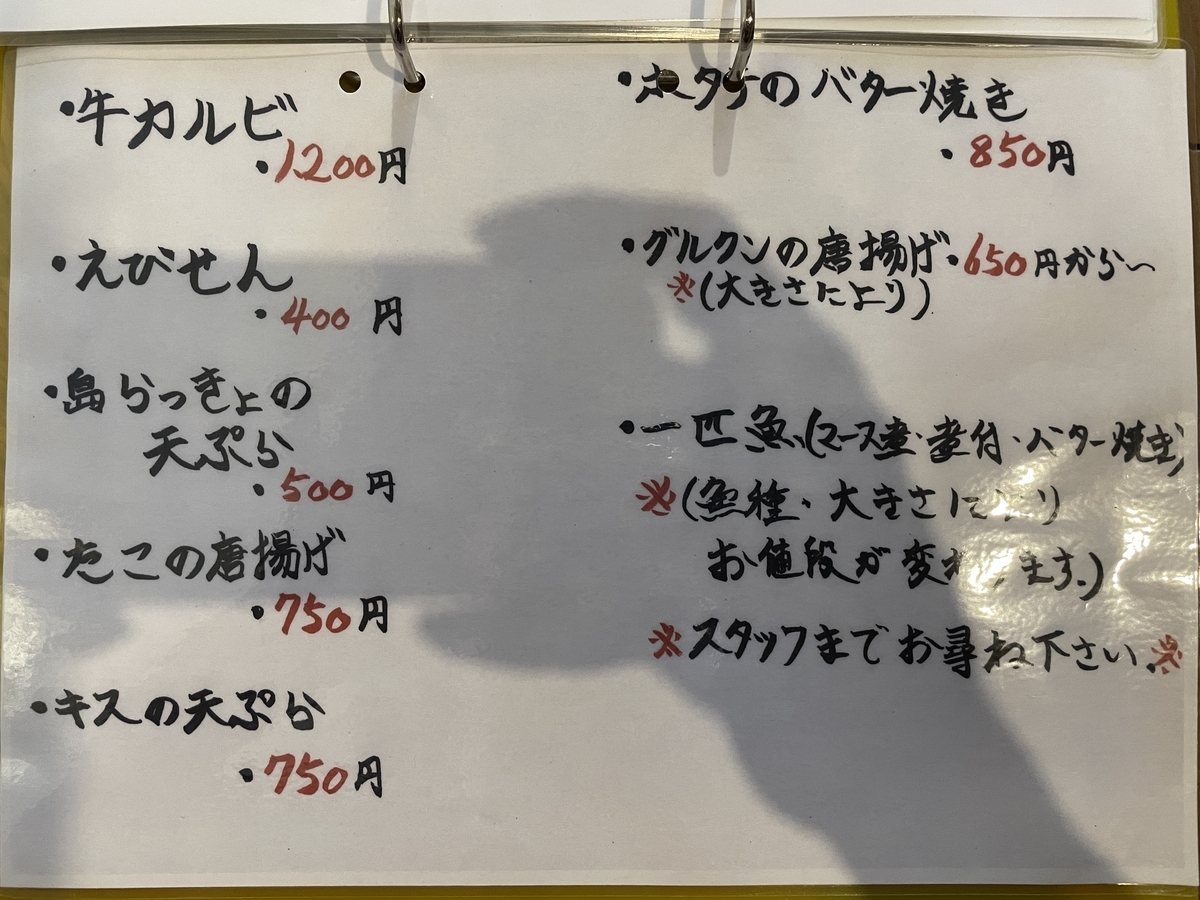 ・牛カルビ
・1200円
・えびせん
・400円
・島らっきょの
天ぷら
・500円
・たこの唐揚げ
・750円
・キスの天ぷら
・750円
・ホタテのバター焼き
・850円
・グルクンの唐揚げ・650円から〜
※(大きさにより)
・一匹魚(マース煮・煮付・バター焼き)
※(魚種・大きさにより
お値段が変わります。)
※スタッフまでお尋ね下さい。※